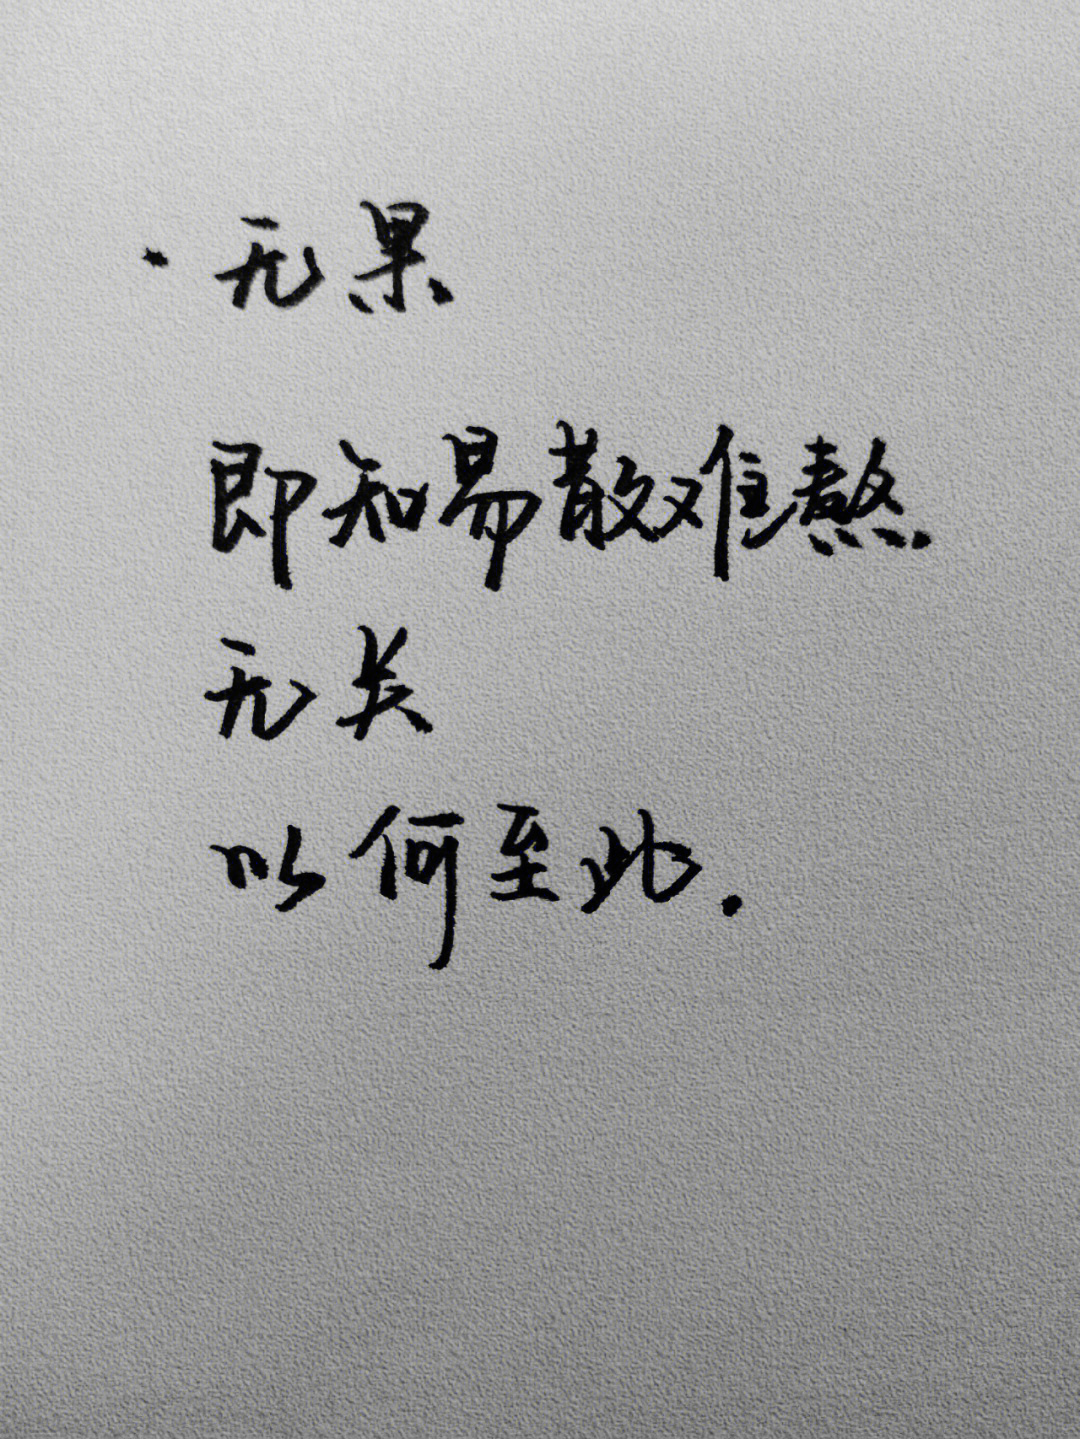 ·无果
即知易散难熬
无关
以何至此.